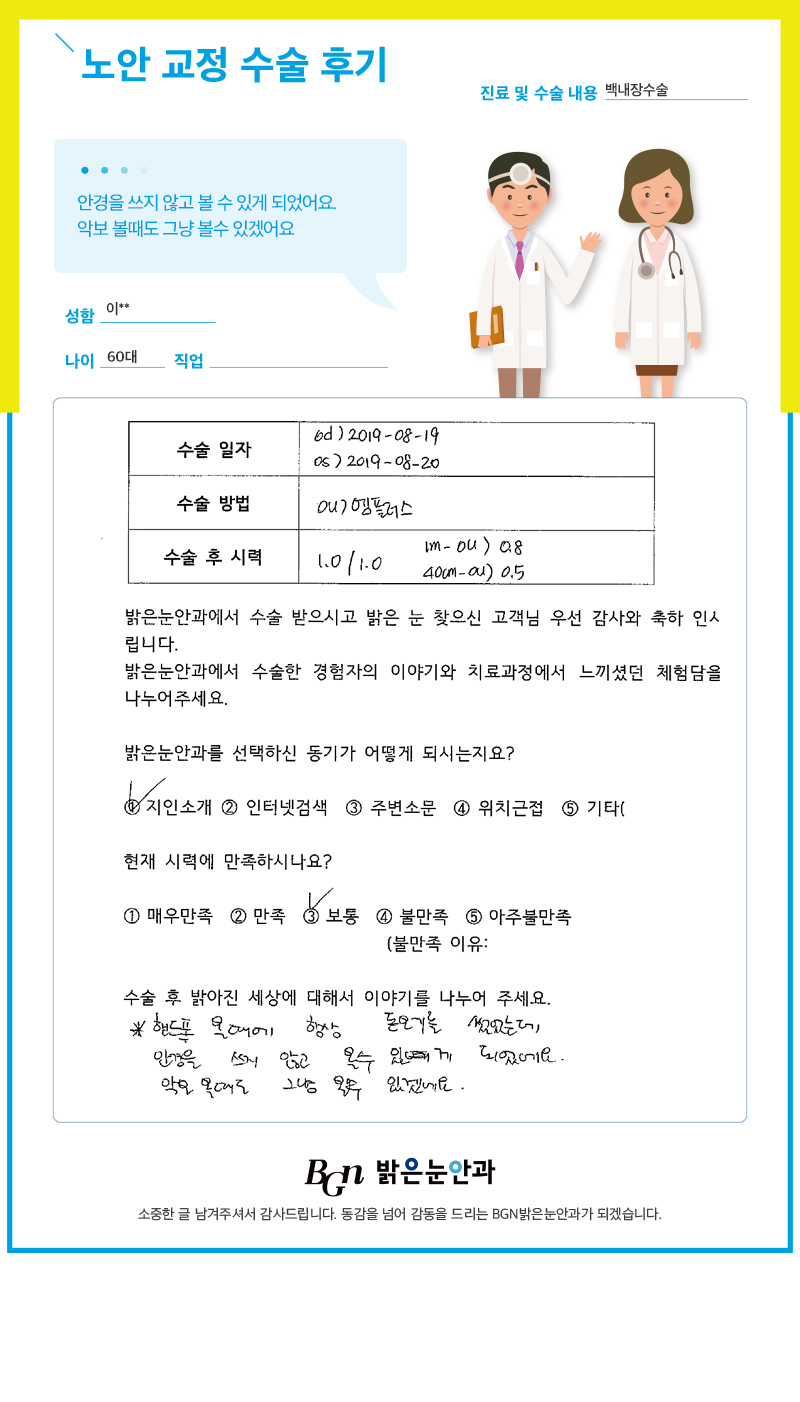 노안 교정 수술 후기
진료 및 수술 내용 백내장수술
안경을 쓰지 않고 볼 수 있게 되었어요.
악보 볼때도 그냥 볼수 있겠어요
성함 이**
나이 60대 직업
수술 일자 od) 2019-08-19
os) 2019-08-20
수술 방법 OU) 엠플러스
수술 후 시력 1.0 / 1.0 1m - OU) 0.8
40cm - OU) 0.5
밝은눈안과에서 수술 받으시고 밝은 눈 찾으신 고객님 우선 감사와 축하 인사
립니다.
밝은눈안과에서 수술한 경험자의 이야기와 치료과정에서 느끼셨던 체험담을
나누어주세요.
밝은눈안과를 선택하신 동기가 어떻게 되시는지요?
① 지인소개 ② 인터넷검색 ③ 주변소문 ④ 위치근접 ⑤ 기타(
현재 시력에 만족하시나요?
① 매우만족 ② 만족 ③ 보통 ④ 불만족 ⑤ 아주불만족
(불만족 이유:
수술 후 밝아진 세상에 대해서 이야기를 나누어 주세요.
※ 핸드폰 볼때에 항상 돋보기를 썼었는데,
안경을 쓰지 않고 볼수 있게 되었어요.
악보 볼때도 그냥 볼수 있겠네요.
BGN 밝은눈안과
소중한 글 남겨주셔서 감사드립니다. 동감을 넘어 감동을 드리는 BGN밝은눈안과가 되겠습니다.